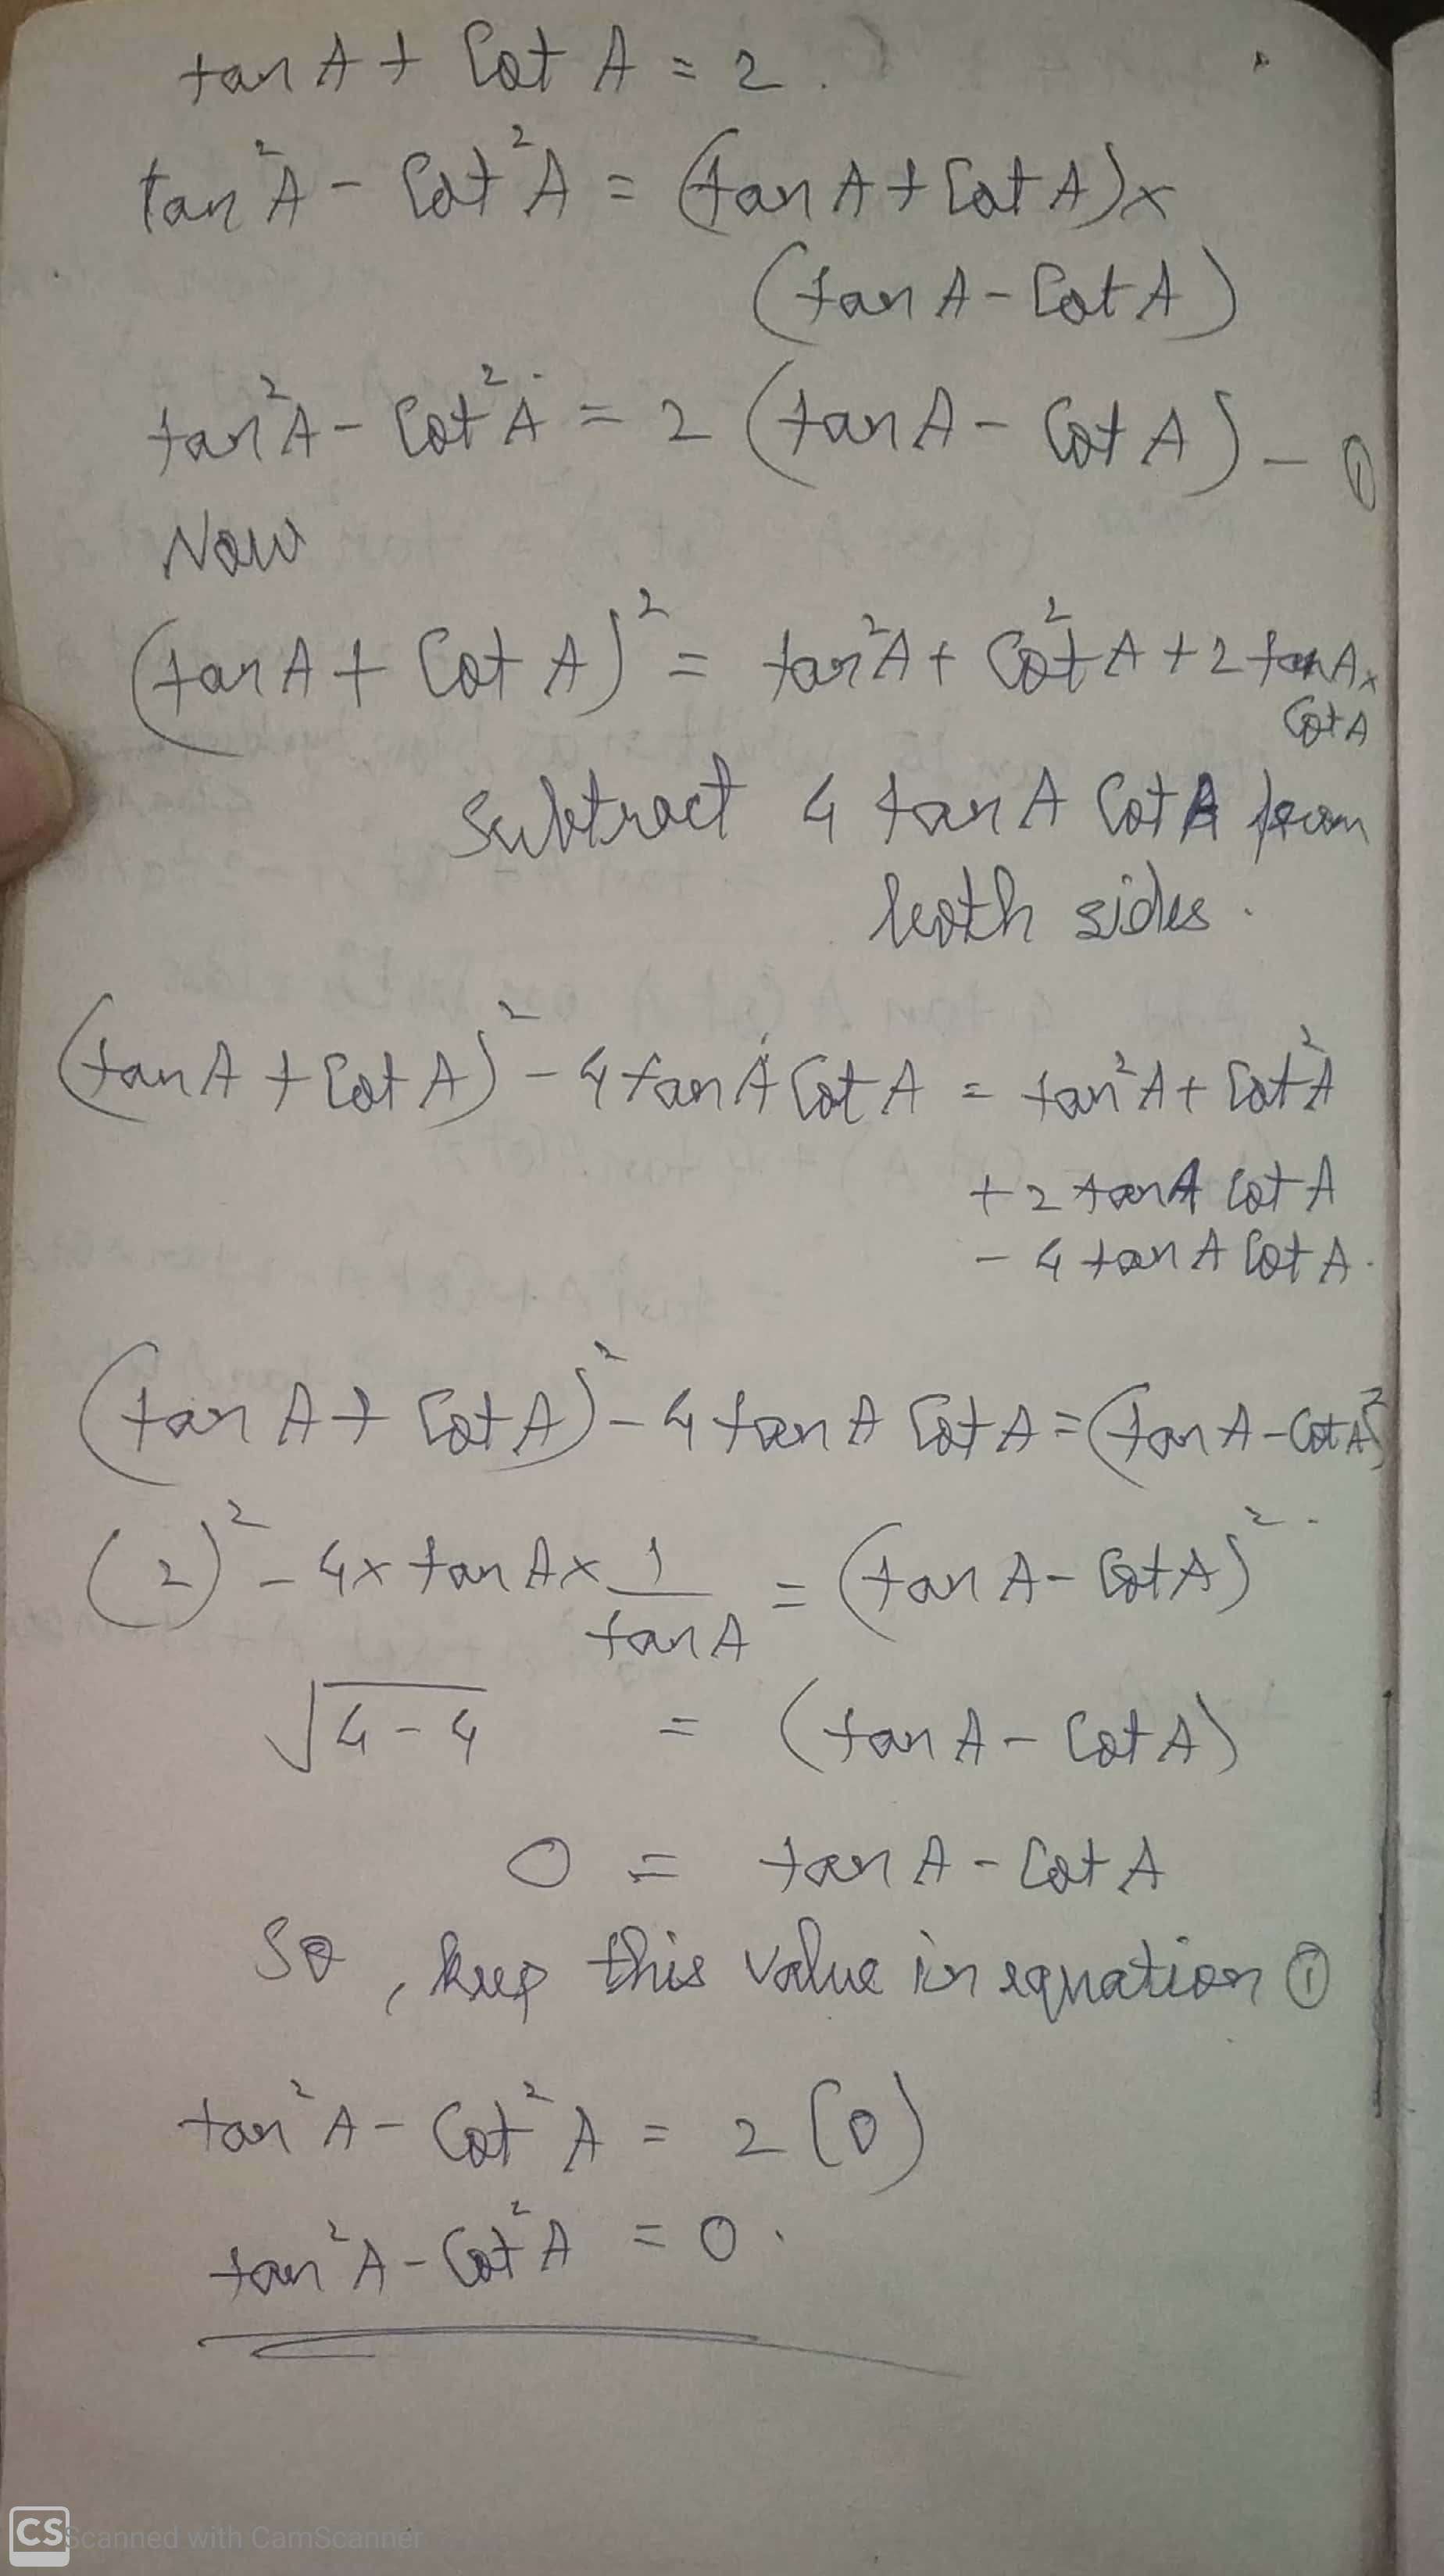 tan A + Cot A = 2.
tan²A - Cot²A = (tan A + Cot A)x
(tan A - Cot A)
tan²A - Cot²A = 2 (tan A - Cot A) - ①
Now
(tan A + Cot A)² = tan²A + Cot²A + 2 tan A x
Cot A
Subtract 4 tan A Cot A from
both sides.
(tan A + Cot A)² - 4 tan A Cot A = tan²A + Cot²A
+ 2 tan A Cot A
- 4 tan A Cot A.
(tan A + Cot A)² - 4 tan A Cot A = (tan A - Cot A)²
(2)² - 4 x tan A x 1/tan A = (tan A - Cot A)²
√4-4 = (tan A - Cot A)
0 = tan A - Cot A
So, keep this value in equation ①
tan²A - Cot²A = 2 (0)
tan²A - Cot²A = 0.
CS Scanned with CamScanner